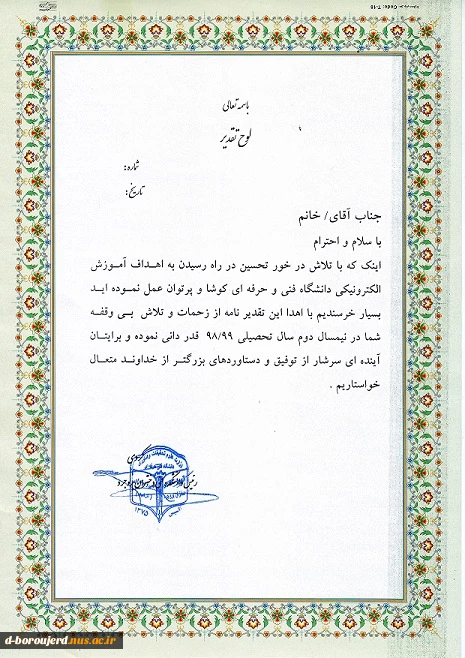 باسمه تعالی
لوح تقدیر
شماره:
تاریخ:
جناب آقای/ خانم
با سلام و احترام
اینک که با تلاش در خور تحسین در راه رسیدن به اهداف آموزش
الکترونیکی دانشگاه فنی و حرفه ای کوشا و پرتوان عمل نموده اید
بسیار خرسندیم با اهدا این تقدیر نامه از زحمات و تلاش بی وقفه
شما در نیمسال دوم سال تحصیلی ۹۸/۹۹ قدر دانی نموده و برایتان
آینده ای سرشار از توفیق و دستاوردهای بزرگتر از خداوند متعال
خواستاریم .
۱۳۷۵
d-boroujerd.nus.ac.ir